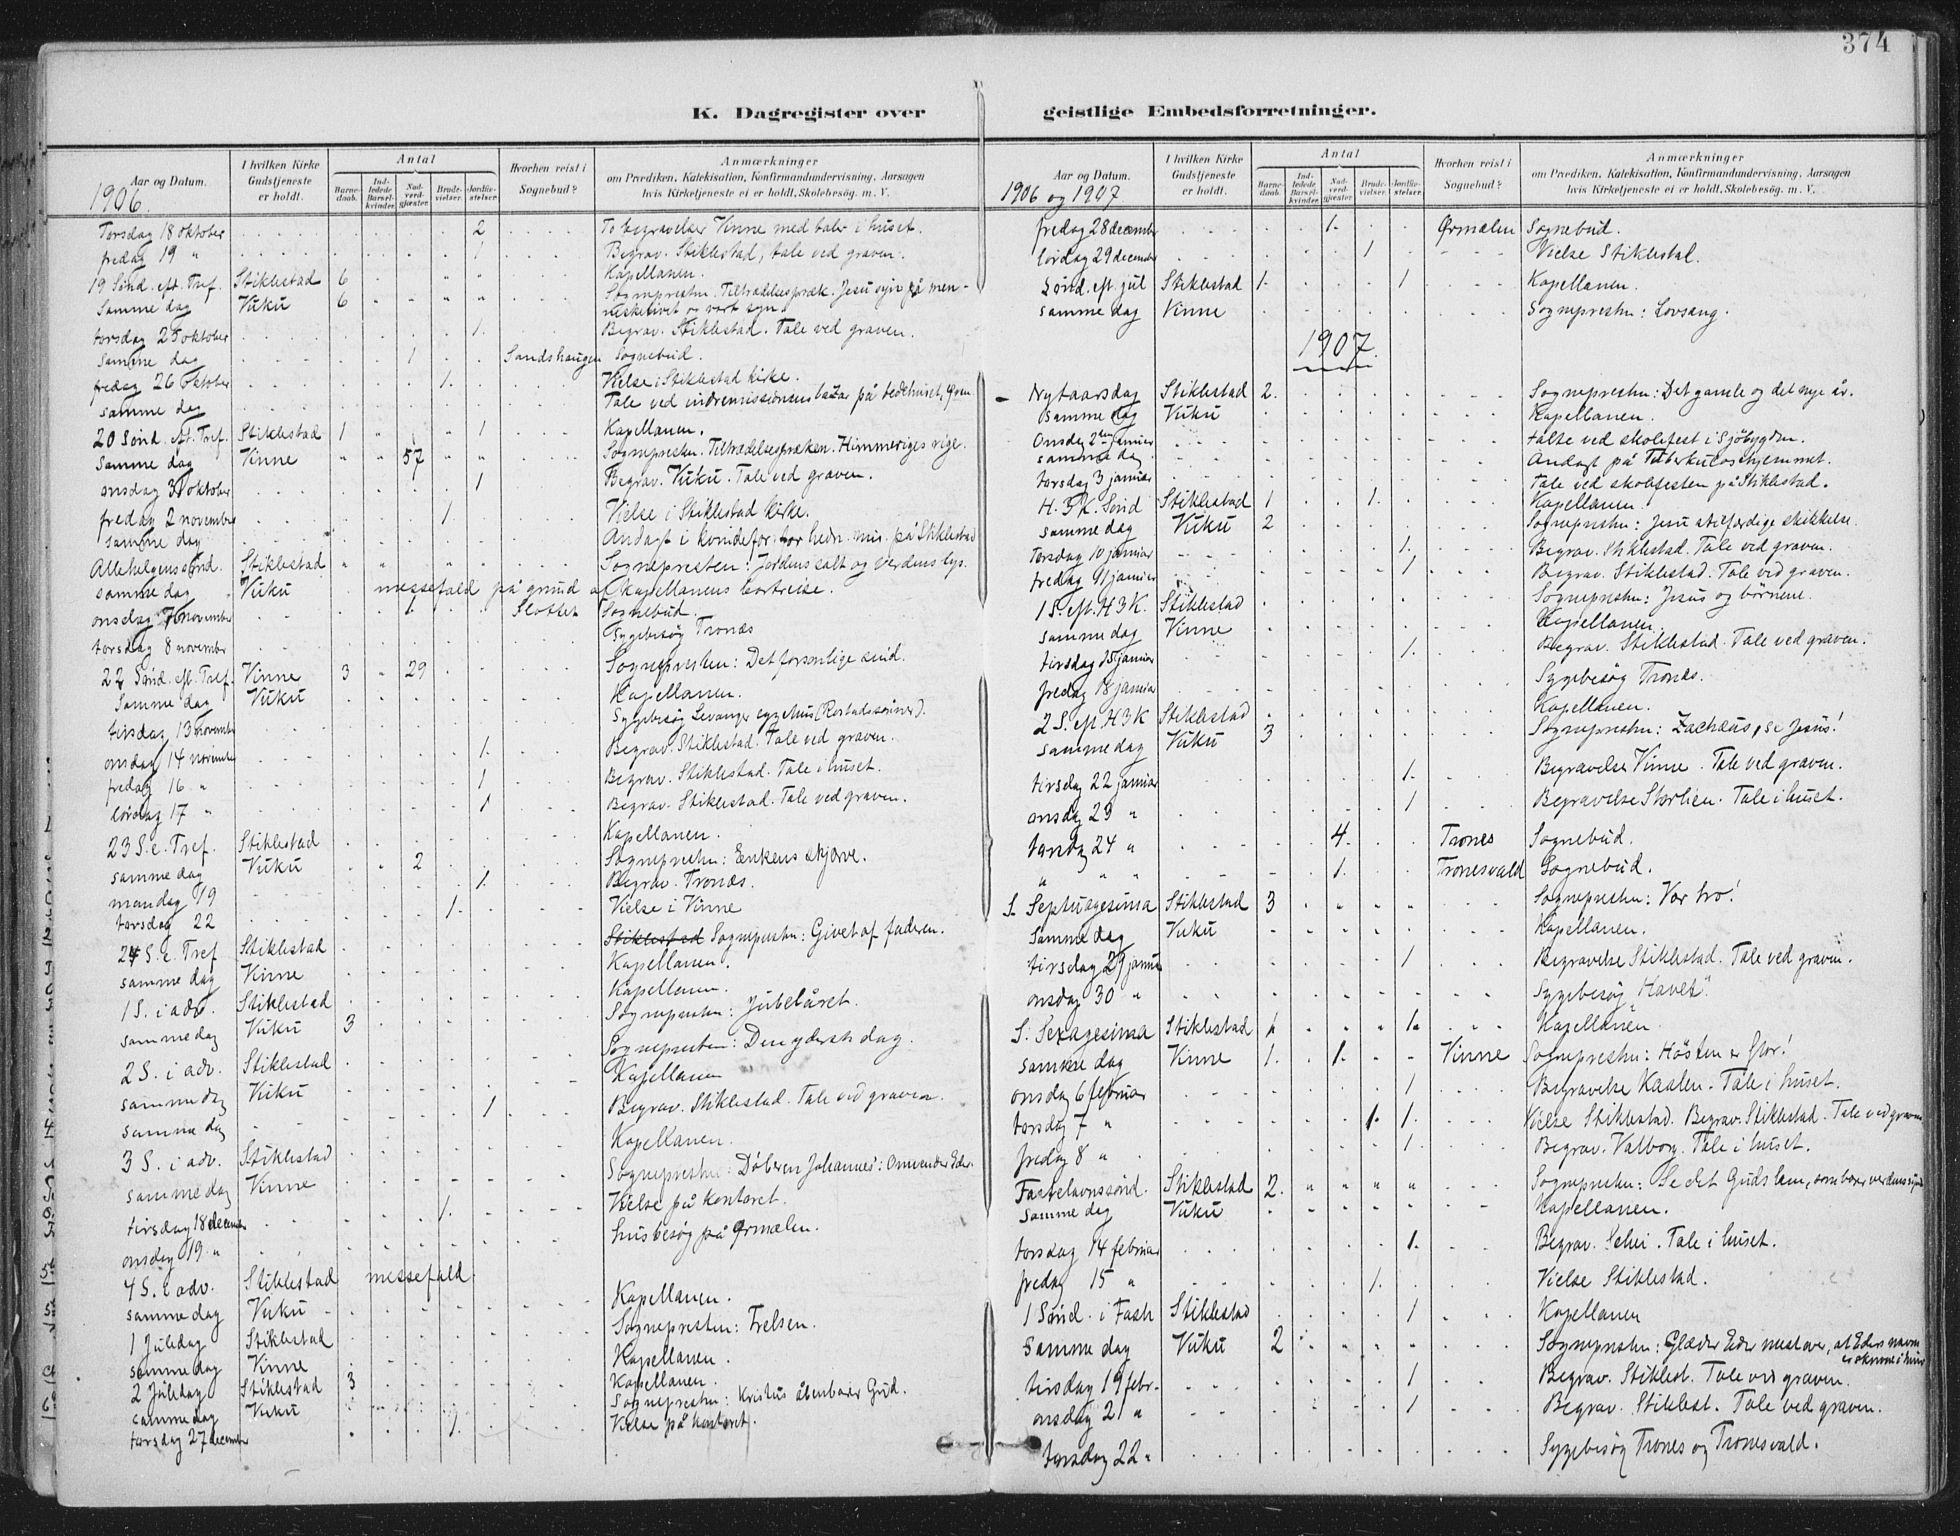 374
K. Dagregister over geistlige Embedsforretninger.
Aar og Datum. I hvilken Kirke Gudstjeneste er holdt. Antal Barnedaab. Indledede Barselkvinder. Nadverdgjæster. Brudevielser. Jordfæstelser. Hvorhen reist i Sognebud? Anmærkninger om Prædiken, Katekisation, Konfirmandundervisning, Aarsagen hvis Kirketjeneste ei er holdt, Skolebesøg, m. V.
1906.
Torsdag 18 oktober 2 To begravelser Vinne med taler i huset.
fredag 19 " 1 Begrav. Stiklestad, tale ved graven.
19 Sønd. eft. Tref. Stiklestad 6 " " Kapellanen.
Samme dag Vuku 6 " " " " Sognepresten. Tiltrædelsespræk. Jesu syn på men-
neskelivet og vort syn.
torsdag 25 oktober 1. Begrav. Stiklestad. Tale ved graven.
Samme dag 1 Sandshaugen Sognebud.
fredag 26 oktober 1. Vielse i Stiklestad kirke.
samme dag Tale ved indremissionens bazar på bedehuset, Ören
20 Sønd. eft. Tref. Stiklestad 1 " " 1 Kapellanen.
Samme dag Vinne " " 57 " " Sognepresten. Tiltrædelsespræken. Himmeriges rige.
onsdag 31 oktober 1 Begrav. Vuku. Tale ved graven.
fredag 2 november 1 Vielse i Stiklestad kirke.
samme dag Andagt i kvindefor. for hedn. mis. på Stiklestad
Allehelgenssønd. Stiklestad " " " " " Sognepresten: Jordens salt og verdens lys.
samme dag Vuku messefald på grund af kapellanens bortreise.
onsdag 7 november 1 Slottet Sognebud.
torsdag 8 november Sygebesøg Tronæs
22 Sønd. eft. Tref. Vinne 3 " 29 Sognepresten: Det forsonlige sind.
Samme dag Vuku Kapellanen.
tirsdag 13 november Sygebesøg Levanger sygehus
onsdag 14 november 1. Begrav. Stiklestad. Tale ved graven.
fredag 16 " 1 Begrav. Stiklestad. Tale i huset.
lørdag 17 " 1 Begrav. Stiklestad. Tale ved graven.
23 S. e. Tref. Stiklestad Kapellanen.
samme dag Vuku " 2 Sognepresten: Enkens skjærv.
mandag 19 1. Begrav. Tronæs.
torsdag 22 1. Vielse i Vinne
24 S. e. Tref Stiklestad Stiklestad Sognepresten: Givet af faderen.
samme dag Vinne Kapellanen.
1 S. i adv. Stiklestad Kapellanen.
samme dag Vuku 3 Sognepresten: Jubelåret.
2 S. i adv. Stiklestad Sognepresten: Den yderste dag.
samme dag Vuku Kapellanen
samme dag 1 Begrav. Stiklestad. Tale ved graven.
3 S. i adv. Stiklestad Kapellanen.
samme dag Vinne Sognepresten: Døberen Johannes: Omvender Eder.
tirsdag 18 december 1. Vielse på kontoret.
onsdag 19 " husbesøg på Ørmælen.
4 S. i adv. Stiklestad messefald
samme dag Vuku Kapellanen.
1 Juledag Stiklestad Sognepresten: Frelsen.
samme dag Vinne Kapellanen.
2 Juledag Stiklestad 3 Kapellanen.
samme dag Vuku Sognepresten: Kristus åbenbarer Gud.
torsdag 27 december 1. Vielse på kontoret.
Aar og Datum. I hvilken Kirke Gudstjeneste er holdt. Antal Barnedaab. Indledede Barselkvinder. Nadverdgjæster. Brudevielser. Jordfæstelser. Hvorhen reist i Sognebud? Anmærkninger om Prædiken, Katekisation, Konfirmandundervisning, Aarsagen hvis Kirketjeneste ei er holdt, Skolebesøg, m. V.
1906 og 1907.
fredag 28 december 1. Ørmælen Sognebud.
lørdag 29 december 1 Vielse Stiklestad.
Sønd. eft. jul Stiklestad 1. 1 Kapellanen.
samme dag Vinne Sognepresten: Lovsang.
1907.
Nytaarsdag Stiklestad 2. Sognepresten: Det gamle og det nye år.
samme dag Vuku Kapellanen.
Onsdag 2den januar talte ved skolefest i Sjöbygden.
samme dag Andagt på Tuberkuloschjemmet.
torsdag 3 januar Tale ved skolefesten på Stiklestad.
H. 3 K. Sønd Stiklestad 1 1. Kapellanen.
samme dag Vuku 2 Sognepresten: Jesu stilfærdige skikkelse.
Torsdag 10 januar 1. Begrav. Stiklestad. Tale ved graven.
fredag 11 januar 1 Begrav. Stiklestad. Tale ved graven.
1 S. eft. H 3 K. Stiklestad Sognepresten: Jesus og børnene.
samme dag Vinne Kapellanen.
tirsdag 15 januar 1. Begrav. Stiklestad. Tale ved graven.
fredag 18 januar Sygebesøg Tronæs.
2 S. eft H 3 K Stiklestad Kapellanen.
samme dag Vuku 3 Sognepresten: Zachæus, se Jesus!
tirsdag 22 januar 1. Begravelse Vinne. Tale ved graven.
onsdag 23 " 1 Begravelse Storlien. Tale i huset.
torsdag 24 " 4. Trones Sognebud.
" " " 1. Tronesvald Sognebud.
S. Septuagesima Stiklestad 3 " " " " Sognepresten: Vor tro!
Samme dag Vuku Kapellanen.
tirsdag 29 januar 1 Begravelse Stiklestad. Tale ved graven.
onsdag 30 " Sygebesøg "Havet".
S. Sexagesima Stiklestad 1 " " " 1. Kapellanen
samme dag Vinne 1. 1. Vinne Sognepresten: Hösten er stor!
onsdag 6 februar 1 Begravelse Kaalen. Tale i huset.
torsdag 7 " 1. 1. Vielse Stiklestad. Begrav. Stiklestad. Tale ved graven
fredag 8 " 1 Begrav. Valborg. Tale i huset.
Fastelavnssønd. Stiklestad 2. " " " " Sognepresten: Se det Guds lam, som bærer verdens synd
Samme dag Vuku Kapellanen.
torsdag 14 februar 1. Begrav. Schei. Tale i huset.
fredag 15 " 1. Vielse Stiklestad.
1 Sønd. i Faste Stiklestad 1 Kapellanen
Samme dag Vuku 2 Sognepresten: Glæder Eder mest over, at Eders navne
er skrevne i himlen
tirsdag 19 febr. 1 Begrav. Stiklest. Tale ved graven.
onsdag 21 " 1 Begrav. Stiklest. Tale ved graven.
torsdag 22 " Sygebesøg Trones og Tronesvald.